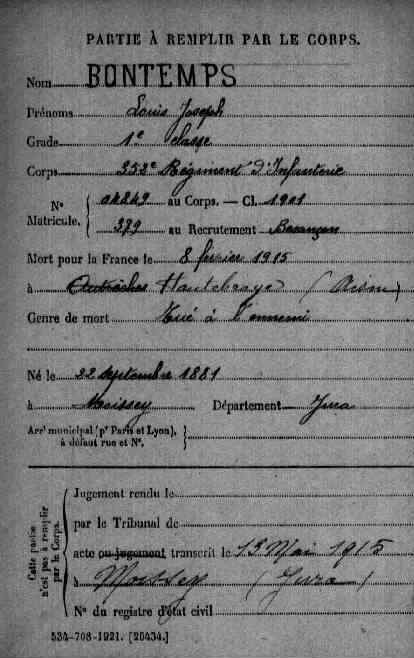 PARTIE À REMPLIR PAR LE CORPS.
Nom BONTEMPS
Prénoms Louis Joseph
Grade 1e classe
Corps 352e Régiment d'Infanterie
N° Matricule. 04849 au Corps. — Cl. 1901
379 au Recrutement Besançon
Mort pour la France le 8 février 1915
à Autrèches Hautebraye (Aisne)
Genre de mort Tué à l'ennemi
Né le 22 septembre 1881
à Moissey Département Jura
Arrt municipal (pr Paris et Lyon), à défaut rue et N°.
Cette partie n'est pas à remplir par le Corps.
Jugement rendu le
par le Tribunal de
acte ou jugement transcrit le 13 Mai 1915
à Moissey (Jura)
N° du registre d'état civil
534-708-1921. [26434.]